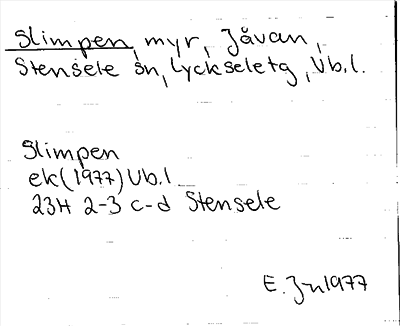 Slimpen, myr, Jåvan,
Stensele sn, Lyckseletg, Vb.l.
Slimpen
ek(1977)Vb.l
23H 2-3 c-d Stensele
E. Jn 1977